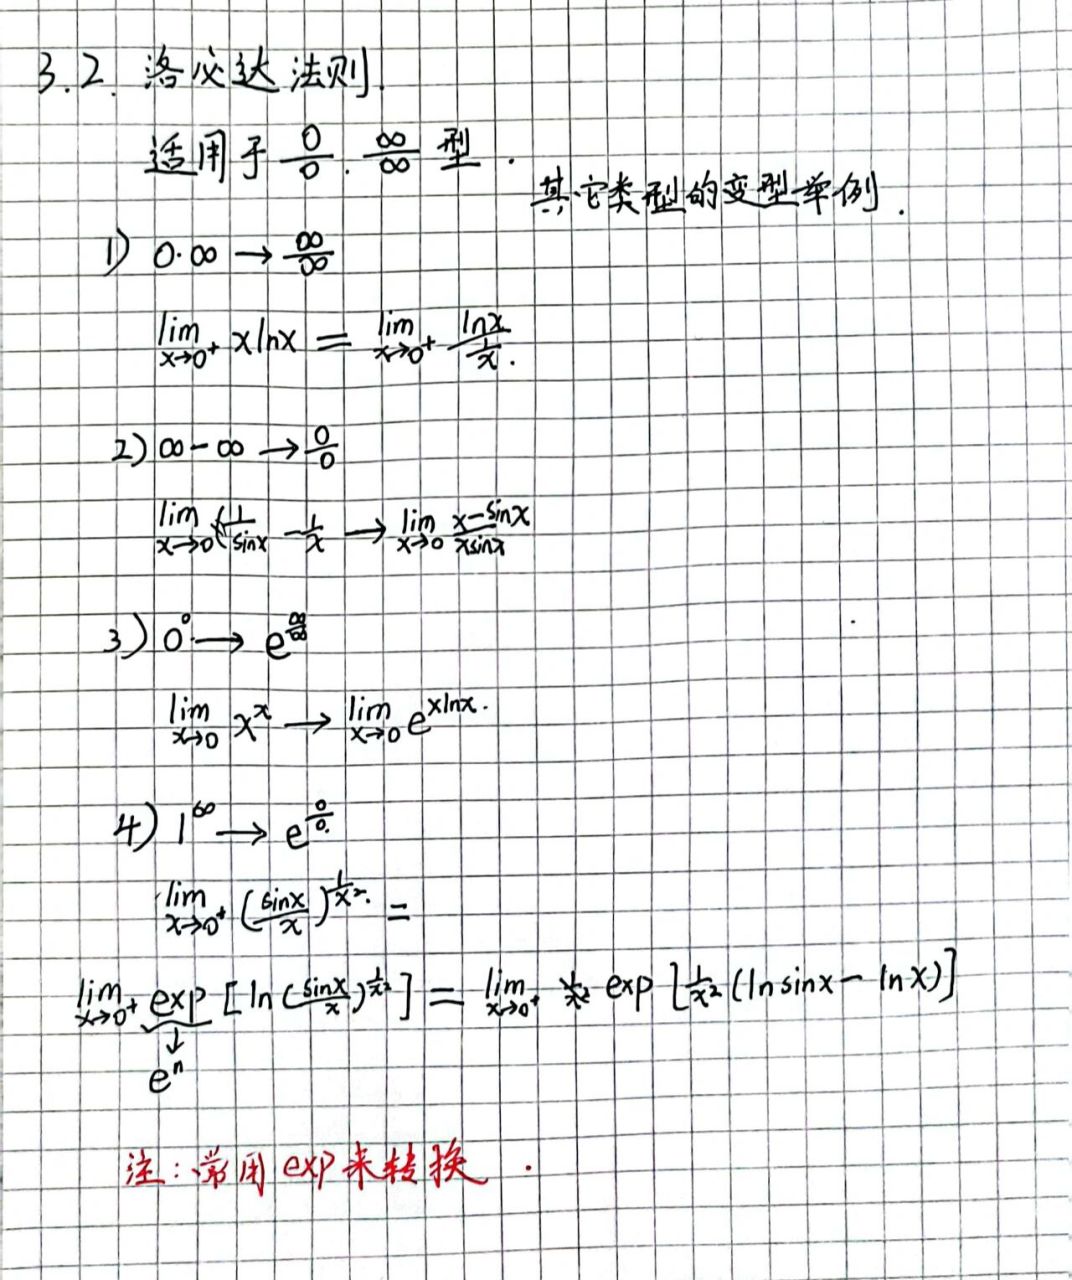 3.2. 洛必达法则.
适用于 0/0. ∞/∞ 型.
其它类型的变型举例.
1) 0·∞ → ∞/∞
lim x→0⁺ xlnx = lim x→0⁺ lnx/(1/x).
2) ∞-∞ → 0/0
lim x→0 (1/sinx - 1/x → lim x→0 (x-sinx)/(xsinx)
3) 0⁰ → e^(∞/∞)
lim x→0 x^x → lim x→0 e^(xlnx).
4) 1^∞ → e^(0/0.)
lim x→0⁺ (sinx/x)^(1/x²). =
lim x→0⁺ exp [ln(sinx/x)^(1/x²)] = lim x→0⁺ exp [1/x² (lnsinx - lnx)]
↓
eⁿ
注:常用exp来转换.